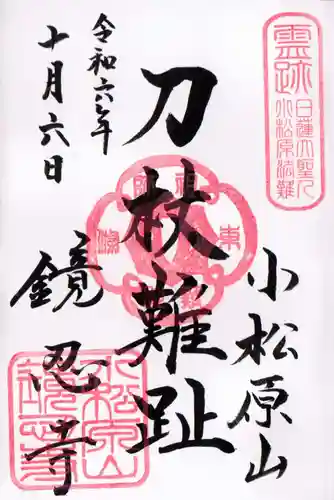 霊跡
日蓮大聖人
小松原法難
小松原山
刀杖難趾
令和六年
十月六日
鏡忍寺
小松原山
鏡忍寺